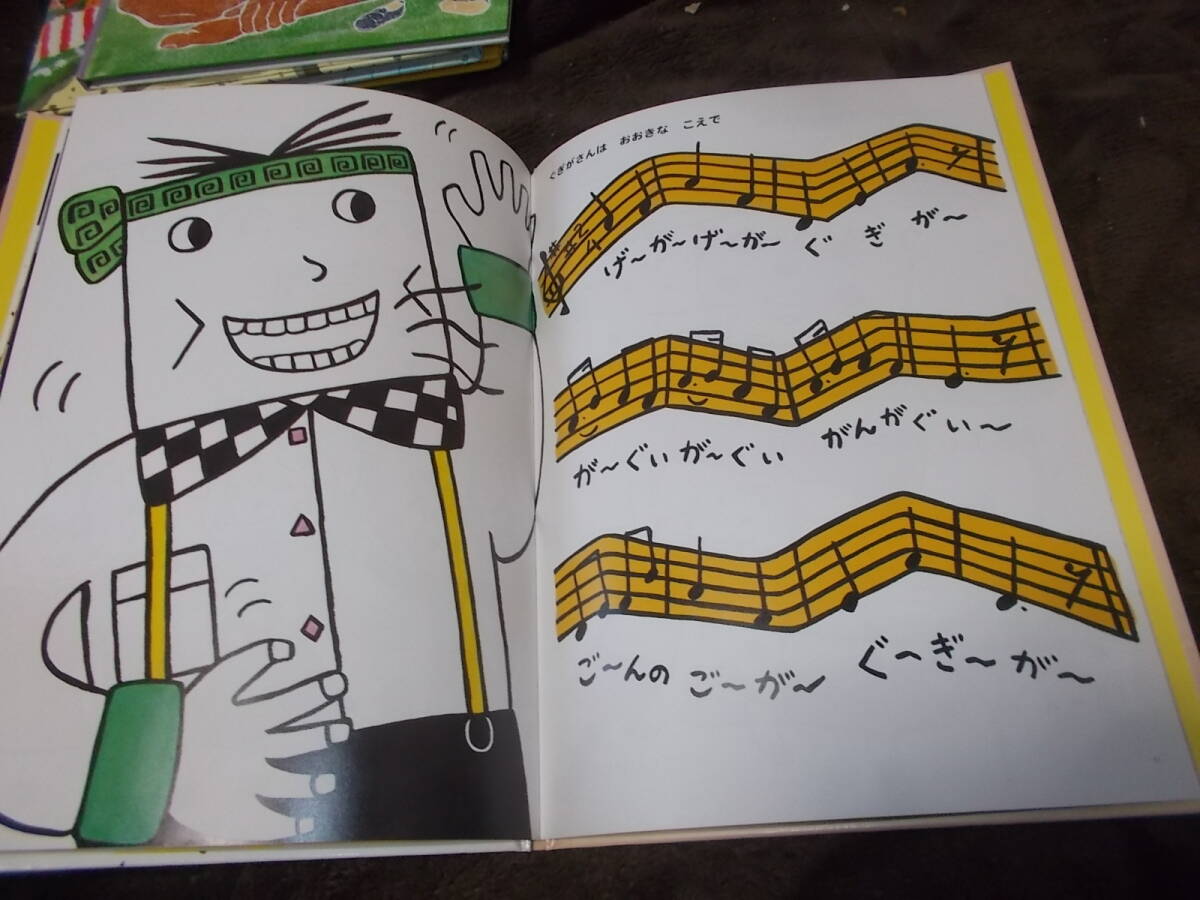 ぐぎがさんは おおきな こえで
げ〜が〜げ〜が〜 ぐ ぎ が〜
が〜ぐいが〜ぐい がんがぐい〜
ご〜んの ご〜が〜 ぐ〜ぎ〜が〜